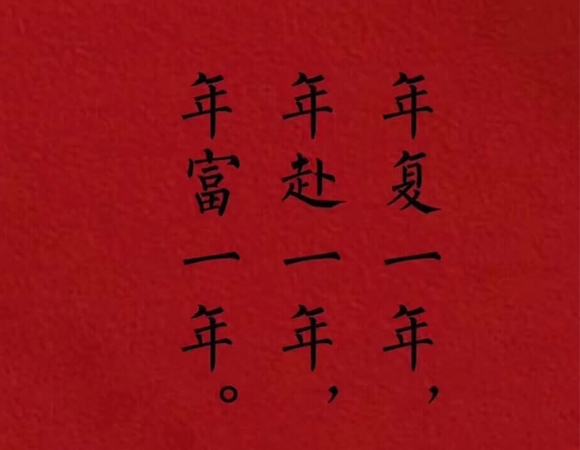 年复一年，
年赴一年，
年富一年。